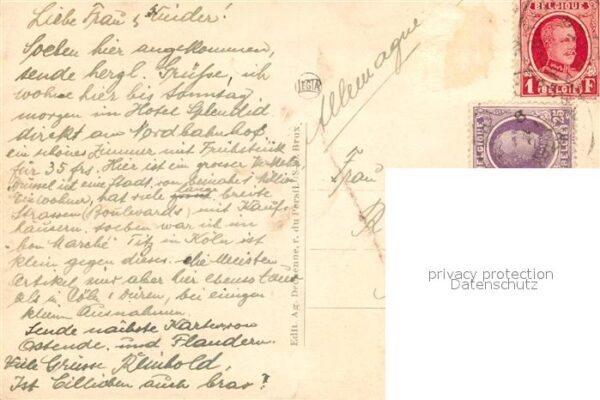 Liebe Frau & Kinder!
Soeben hier angekommen,
sende herzl. Grüsse, ich
wohne hier bis Sonntag
morgen im Hotel Splendid
direkt am Nordbahnhof
ein schönes Zimmer mit Frühstück
für 35 frs. Hier ist ein grosser Verkehr
Brüssel ist eine Stadt von beinahe 1 Million
Einwohner, hat viele lange breite
Strassen (Boulevards) mit Kauf-
häusern. soeben war ich im
Bon Marché Titz in Köln ist
klein gegen dieses. die Meisten
Artikel sind aber hier ebenso teuer
als in Cöln & Düren, bei einigen
kleinen Ausnahmen.
Sende nächste Karten von
Ostende und Flandern
Viele Grüsse Reinhold,
Ist Cillichen auch brav?
LEGIA
Edit. Ag. Decuenne, r. du Persil, 8-A, Brux.
Allemagne
Frau
BELGIQUE
1 F
BELGIQUE
BELGIË
25
privacy protection
Datenschutz